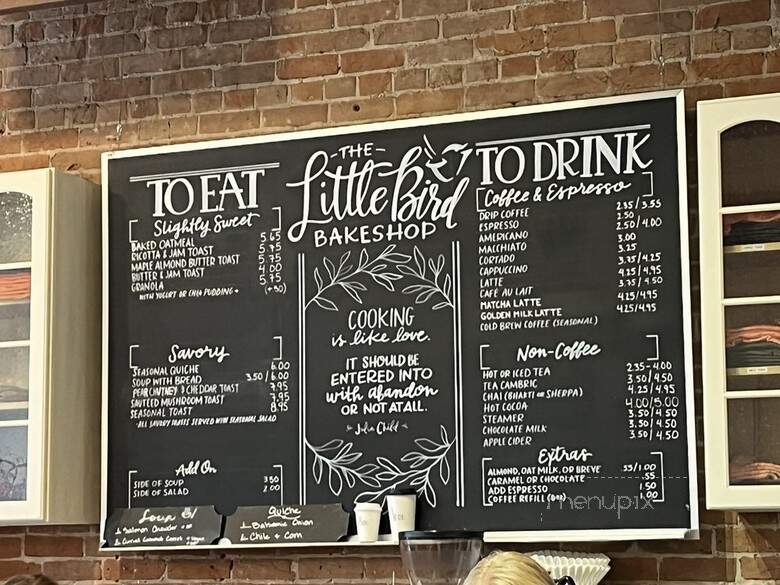 THE
Little Bird
BAKESHOP
TO EAT
Slightly Sweet
BAKED OATMEAL 5.65
RICOTTA & JAM TOAST 5.75
MAPLE ALMOND BUTTER TOAST 5.75
BUTTER & JAM TOAST 4.00
GRANOLA 5.75
WITH YOGURT OR CHIA PUDDING + (+.50)
Savory
SEASONAL QUICHE 6.00
SOUP WITH BREAD 3.50/6.00
PEAR CHUTNEY & CHEDDAR TOAST 7.95
SAUTEED MUSHROOM TOAST 7.95
SEASONAL TOAST 8.95
*ALL SAVORY TOASTS SERVED WITH SEASONAL SALAD
Add On
SIDE OF SOUP 3.50
SIDE OF SALAD 2.00
Soup
1. Salmon Chowder
2. Curried Coconut Carrot
Quiche
1. Balsamic Onion
2. Chile & Corn
COOKING
is like love.
IT SHOULD BE
ENTERED INTO
with abandon
OR NOT AT ALL.
Julia Child
TO DRINK
Coffee & Espresso
DRIP COFFEE 2.35/3.55
ESPRESSO 2.50
AMERICANO 2.50/4.00
MACCHIATO 3.00
CORTADO 3.25
CAPPUCCINO 3.75/4.25
LATTE 4.25/4.95
CAFÉ AU LAIT 3.75/4.50
MATCHA LATTE 4.25/4.95
GOLDEN MILK LATTE 4.25/4.95
COLD BREW COFFEE (SEASONAL)
Non-Coffee
HOT OR ICED TEA 2.35-4.00
TEA CAMBRIC 3.50/4.50
CHAI (BHAKTI OR SHERPA) 4.25/4.95
HOT COCOA 4.00/5.00
STEAMER 3.50/4.50
CHOCOLATE MILK 3.50/4.50
APPLE CIDER 3.50/4.50
Extras
ALMOND, OAT MILK, OR BREVE .55/1.00
CARAMEL OR CHOCOLATE .55
ADD ESPRESSO 1.50
COFFEE REFILL 1.00
menupix